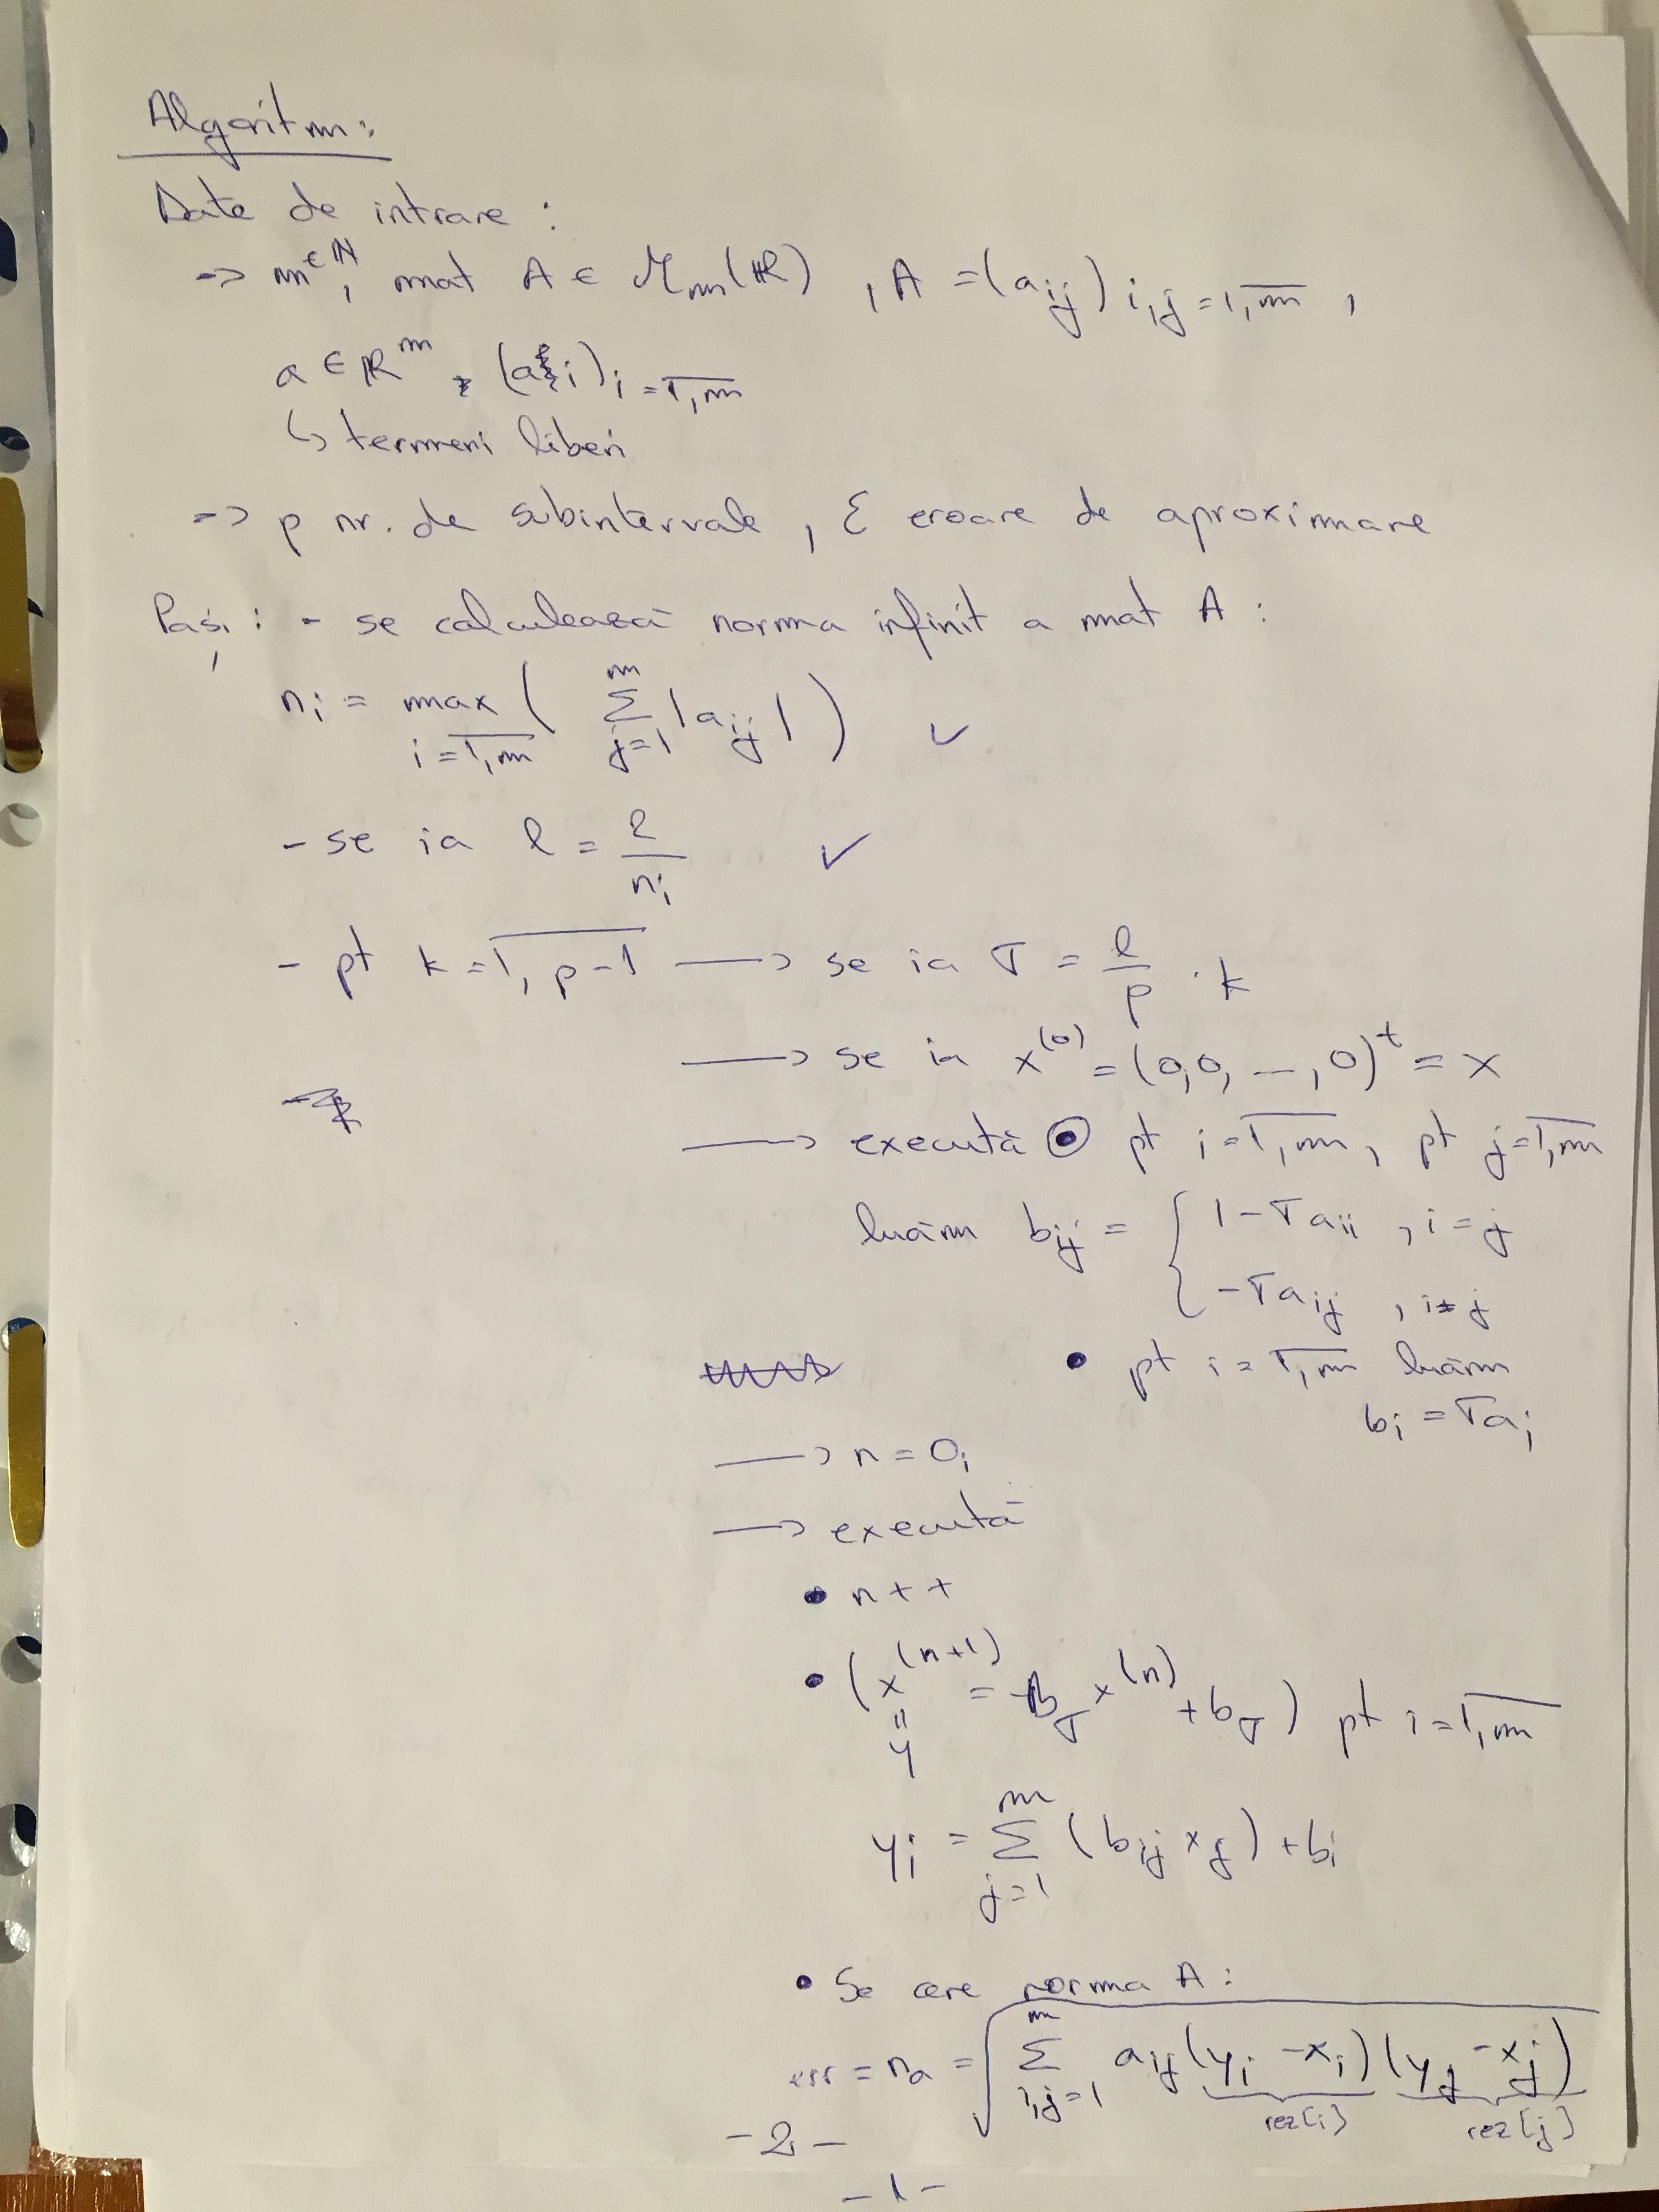 Algoritm:
Date de intrare :
-> m∈ℕ, mat A ∈ Mm(ℝ) , A = (aij) i,j = 1,m ,
a ∈ ℝ^m , (ai) i = 1,m
↳ termeni liberi
-> p nr. de subintervale , ε eroare de aproximare
Pași : - se calculează norma infinit a mat A :
ni = max i = 1,m ( Σ j=1 m |aij| ) ✓
- se ia l = 2 / ni ✓
- pt k = 1, p-1 —> se ia σ = l / p · k
—> se ia x^(0) = (0,0, –, 0)^t = x
—> execută ⊙ pt i = 1,m, pt j = 1,m
luăm bij = { 1 - σaii , i = j
- σaij , i ≠ j
• pt i = 1,m luăm
bi = σai
—> n = 0;
—> execută
• n++
• (x^(n+1) = Bσ x^(n) + bσ) pt i = 1,m
"
y
yi = Σ j=1 m (bij xj) + bi
• Se cere norma A :
err = na = √ Σ i,j=1 m aij (yi - xi)(yj - xj)
rez[i] rez[j]
- 2 -
- 1 -